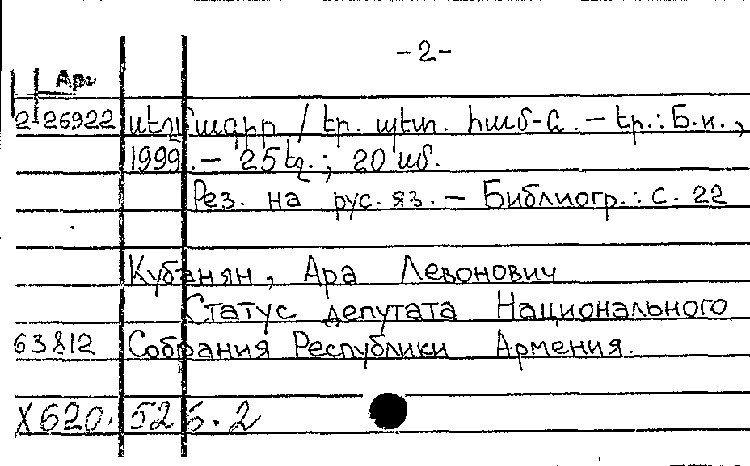 -2-
Арм
2 26922 սեղմագիր / Եր. պետ. համ-ս. – Եր.: Б.и.,
1999. – 25 էջ.; 20 սմ.
Рез. на рус. яз. – Библиогр.: с. 22
Кубанян, Ара Левонович
Статус депутата Национального
63812 Собрания Республики Армения.
X620.525.2